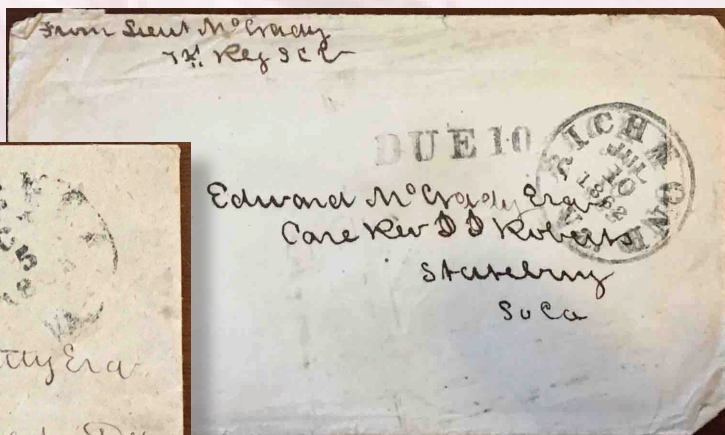 From Lieut McCrady
1st Reg S C V
DUE 10
RICHMOND VA.
JUL
10
1862
Edward McCrady Esq
Care Rev D D Roberts
Stateburg
So Ca
5
VA.
Esq